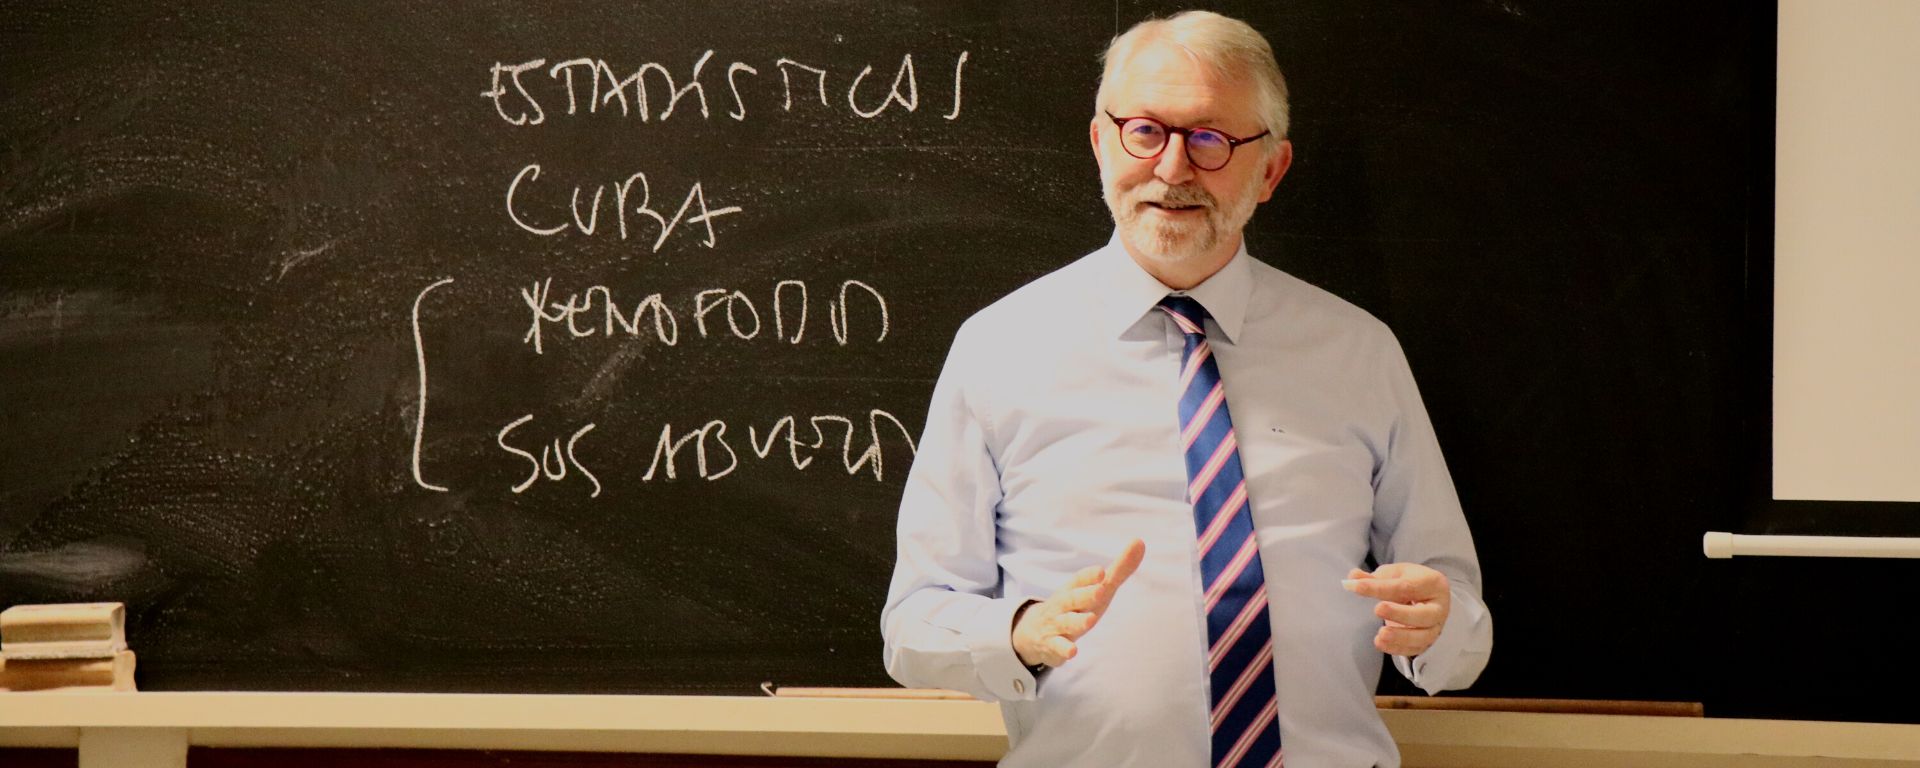 ESTADÍSTICAS
CUBA
XENOFOBIA
SUS